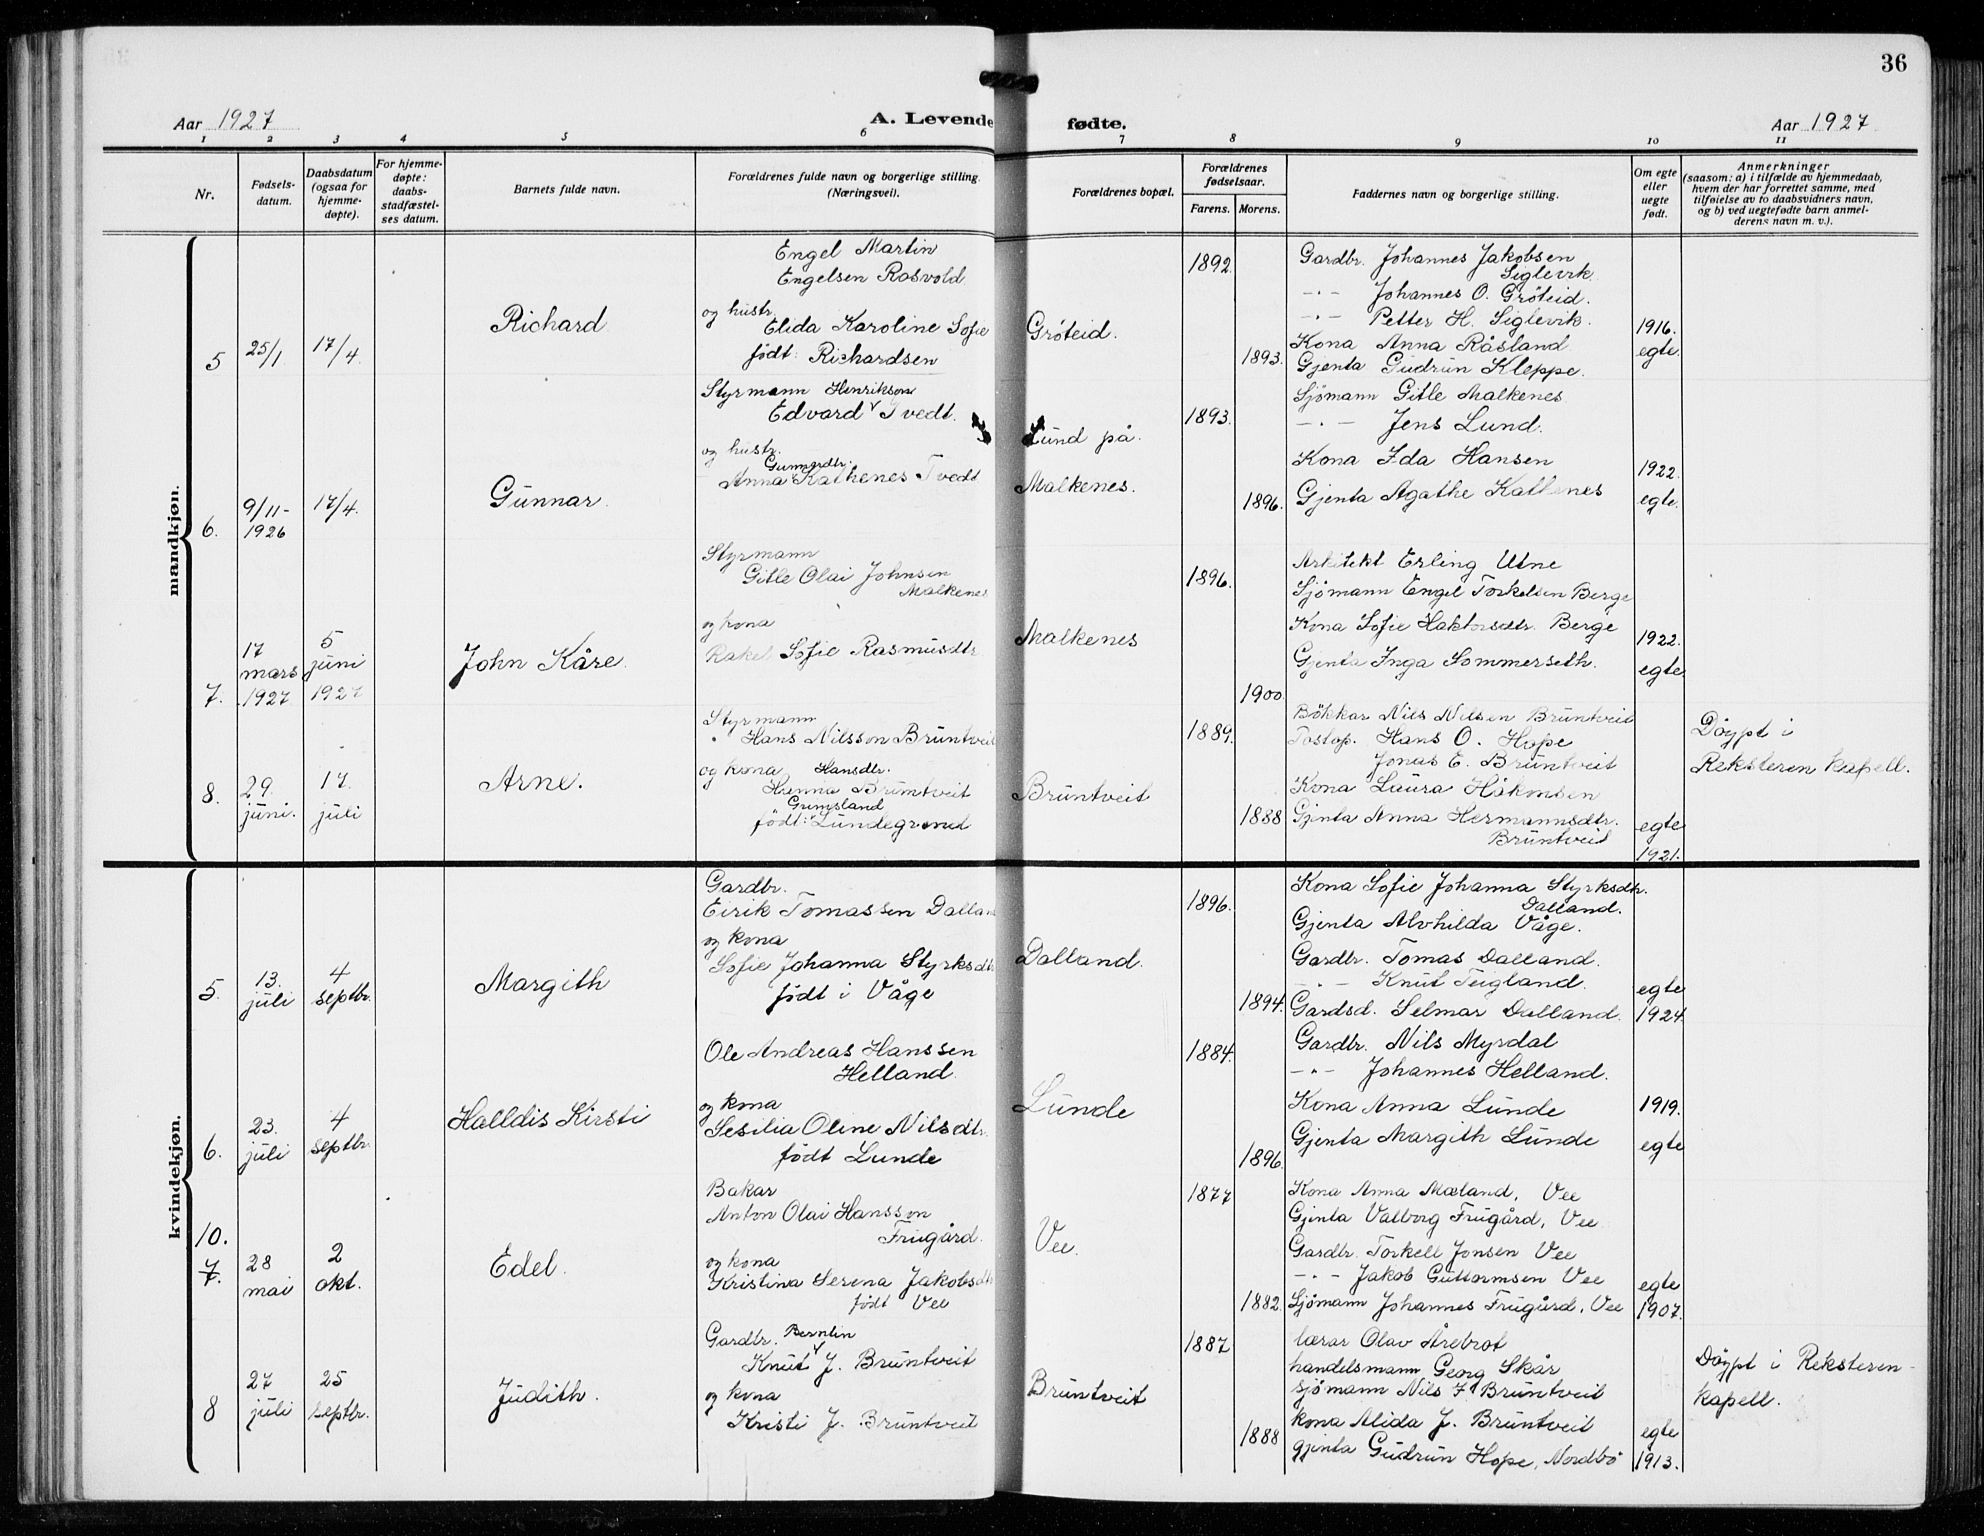 36
Aar 1927
A. Levende fødte.
Aar 1927
1 2 3 4 5 6 7 8 9 10 11
Nr.
Fødsels-
datum.
Daabsdatum
(ogsaa for
hjemme-
døpte).
For hjemme-
døpte:
daabs-
stadfæstel-
ses datum.
Barnets fulde navn.
Forældrenes fulde navn og borgerlige stilling.
(Næringsveil).
Forældrenes bopæl.
Forældrenes
fødselsaar.
Farens. Morens.
Faddernes navn og borgerlige stilling.
Om egte
eller
uegte
født.
Anmerkninger
(saasom: a) i tilfælde av hjemmedaab,
hvem der har forrettet samme, med
tilføielse av to daabsvidners navn,
og b) ved uegtefødte barn anmel-
derens navn m. v.).
mandkjøn.
5
25/1.
17/4.
Richard
Engel Martin
Engelsen Rosvold
og hustr.
Elida Karoline Sofie
født: Richardsen
Grøteid.
1892.
1893.
Gardbr. Johannes Jakobsen
Siglevik
-"- Johannes O. Grøteid.
-"- Petter H. Siglevik.
Kona Anna Råsland
Gjenta Gudrun Kleppe.
1916.
egte.
6.
9/11-
1926
17/4.
Gunnar.
Styrmann Henrikson
Edvard Tvedt.
og hustr.
Gunnardtr.
Anna Kathenes Tvedt
Lund på
Malkenes.
1893.
1896.
Sjømann Gitle Malkenes
-"- Jens Lund.
Kona Ida Hansen
Gjenta Agathe Kathenes
1922.
egte.
7.
17
mars
1927
5
juni
1927
John Kåre.
Styrmann
Gitle Olai Johnsen
Malkenes
og kona
Rakel Sofie Rasmusdtr.
Malkenes
1896.
1900.
Arkitekt Erling Utne
Sjömann Engel Torkelsen Berge
Kona Sofie Haktorsdtr. Berge
Gjenta Inga Sommerseth.
1922.
egte.
8.
29.
juni.
17.
juli
Arne.
Styrmann
Hans Nilsson Bruntveit
og kona Hansdtr.
Hanna Bruntveit
Grimsland
født: Lundegrend
Bruntveit
1889.
1888
Bökkar Nils Nilsen Bruntveit
Postop. Hans O. Hope
Jonas E. Bruntveit
Kona Laura Håkonsen
Gjenta Anna Hermannsdtr.
Bruntveit
egte
1921.
Döypt i
Reksteren kapell.
kvindekjøn.
5.
13.
juli
4
septbr.
Margith
Gardbr.
Eirik Tomassen Dalland
og kona
Sofie Johanna Styrksdtr
født i Våge
Dalland.
1896.
1894.
Kona Sofie Johanna Styrksdtr.
Dalland.
Gjenta Alvhilda Våge.
Gardbr. Tomas Dalland.
-"- Knut Teigland.
Gardsd. Selmar Dalland.
egte
1924.
6.
23.
juli
4
septbr.
Halldis Kirsti
Ole Andreas Hanssen
Helland.
og kona
Sesilia Oline Nilsdtr.
født Lunde
Lunde
1884.
1896.
Gardbr. Nils Myrdal
-"- Johannes Helland.
Kona Anna Lunde
Gjenta Margith Lunde
1919.
egte
10.
7.
28
mai
2
okt.
Edel.
Bakar
Anton Olai Hansson
Frugård.
og kona
Kristina Serena Jakobsdtr
født Vee
Vee.
1877
1882.
Kona Anna Mæland, Vee
Gjenta Valborg Frugård, Vee
Gardbr. Torkell Jonsen Vee
-"- Jakob Guttormsen Vee
Sjømann Johannes Frugård, Vee
egte
1907.
8
27
juli
25
septbr.
Judith.
Gardbr. Berntin
Knut J. Bruntveit
og kona
Kristi J. Bruntveit
Bruntveit
1887
1888
lærar Olav Årebrot
handelsmann Georg Skår
sjømann Nils J. Bruntveit
kona Alida J. Bruntveit
gjenta Gudrun Hope, Nordbø
egte
1913.
Döypt i Reksteren-
kapell.